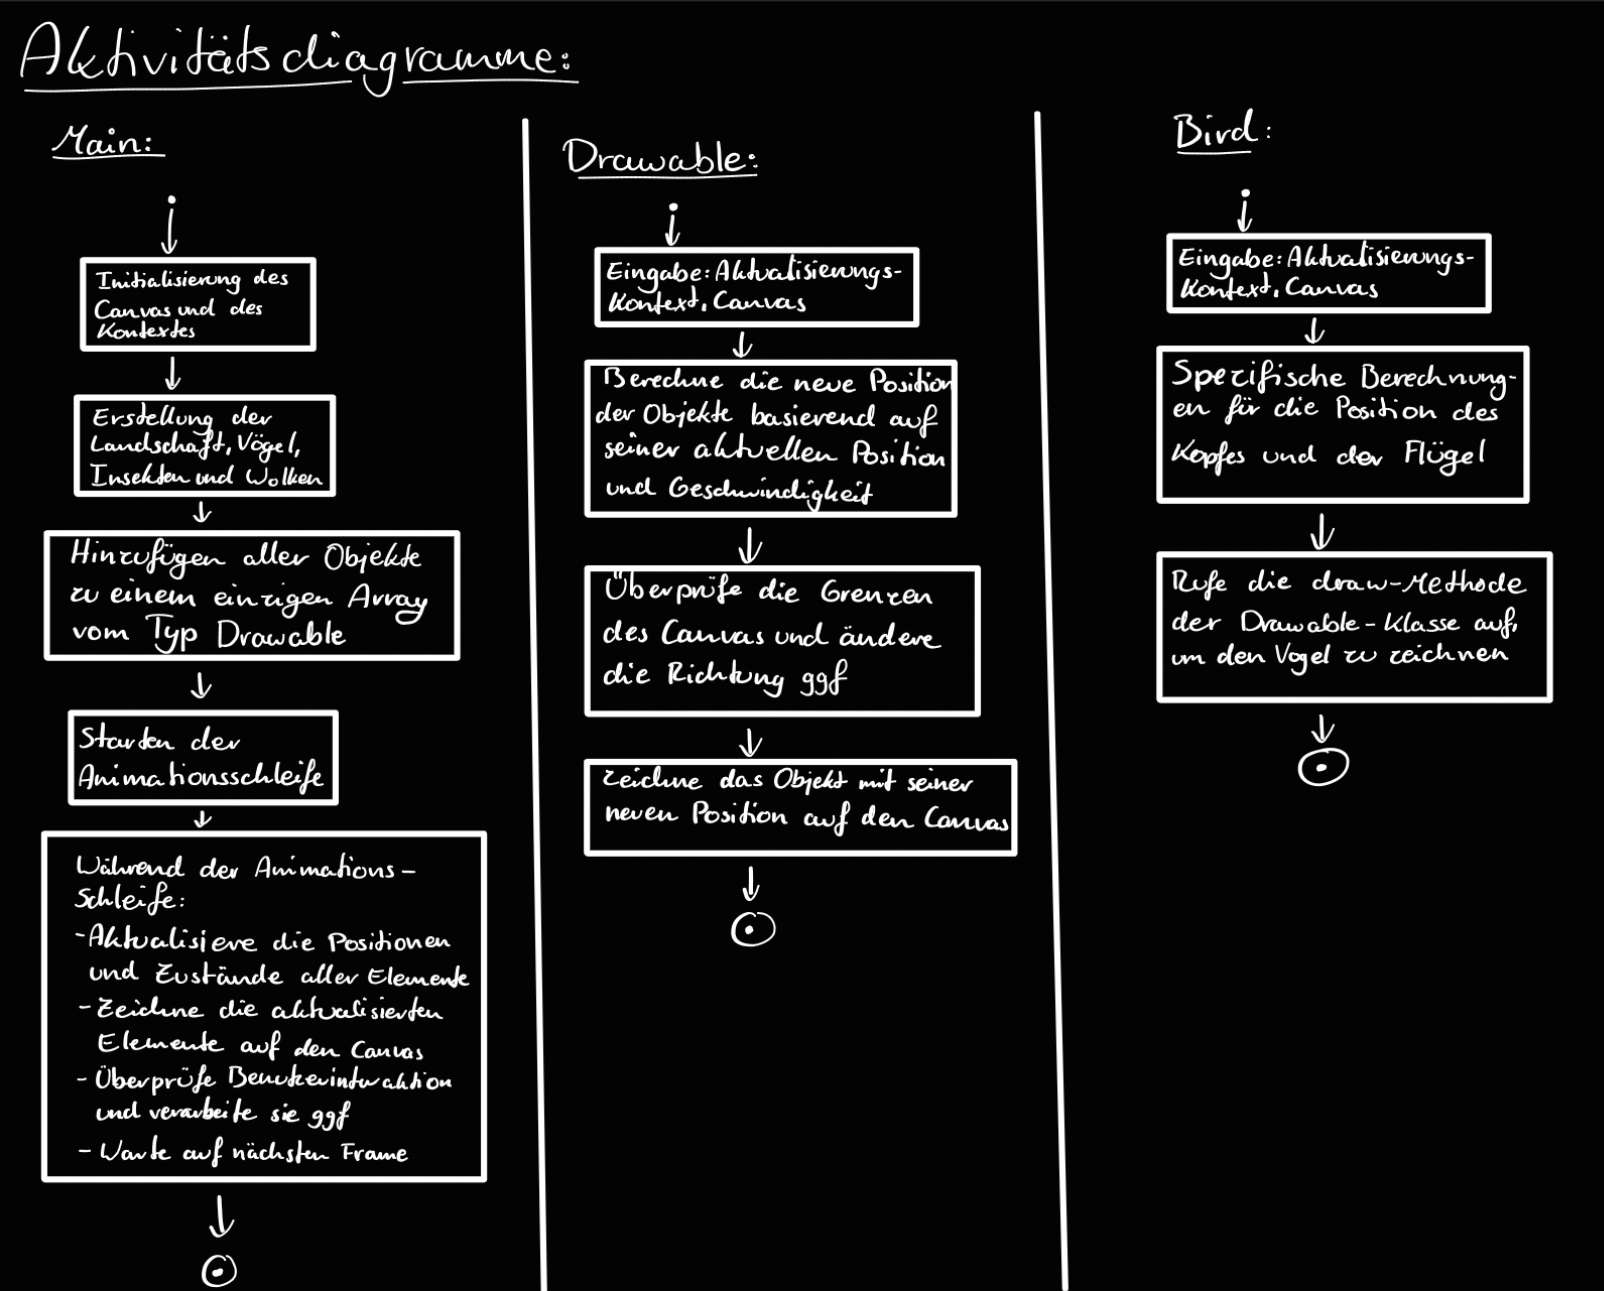 Aktivitätsdiagramme:
Main:
Initialisierung des
Canvas und des
Kontextes
Erstellung der
Landschaft, Vögel,
Insekten und Wolken
Hinzufügen aller Objekte
zu einem einzigen Array
vom Typ Drawable
Starten der
Animationsschleife
Während der Animations-
Schleife:
- Aktualisiere die Positionen
und Zustände aller Elemente
- Zeichne die aktualisierten
Elemente auf den Canvas
- Überprüfe Benutzerinteraktion
und verarbeite sie ggf
- Warte auf nächsten Frame
Drawable:
Eingabe: Aktualisierungs-
Kontext, Canvas
Berechne die neue Position
der Objekte basierend auf
seiner aktuellen Position
und Geschwindigkeit
Überprüfe die Grenzen
des Canvas und ändere
die Richtung ggf
Zeichne das Objekt mit seiner
neuen Position auf den Canvas
Bird:
Eingabe: Aktualisierungs-
Kontext, Canvas
Spezifische Berechnung-
en für die Position des
Kopfes und der Flügel
Rufe die draw-Methode
der Drawable-Klasse auf,
um den Vogel zu zeichnen